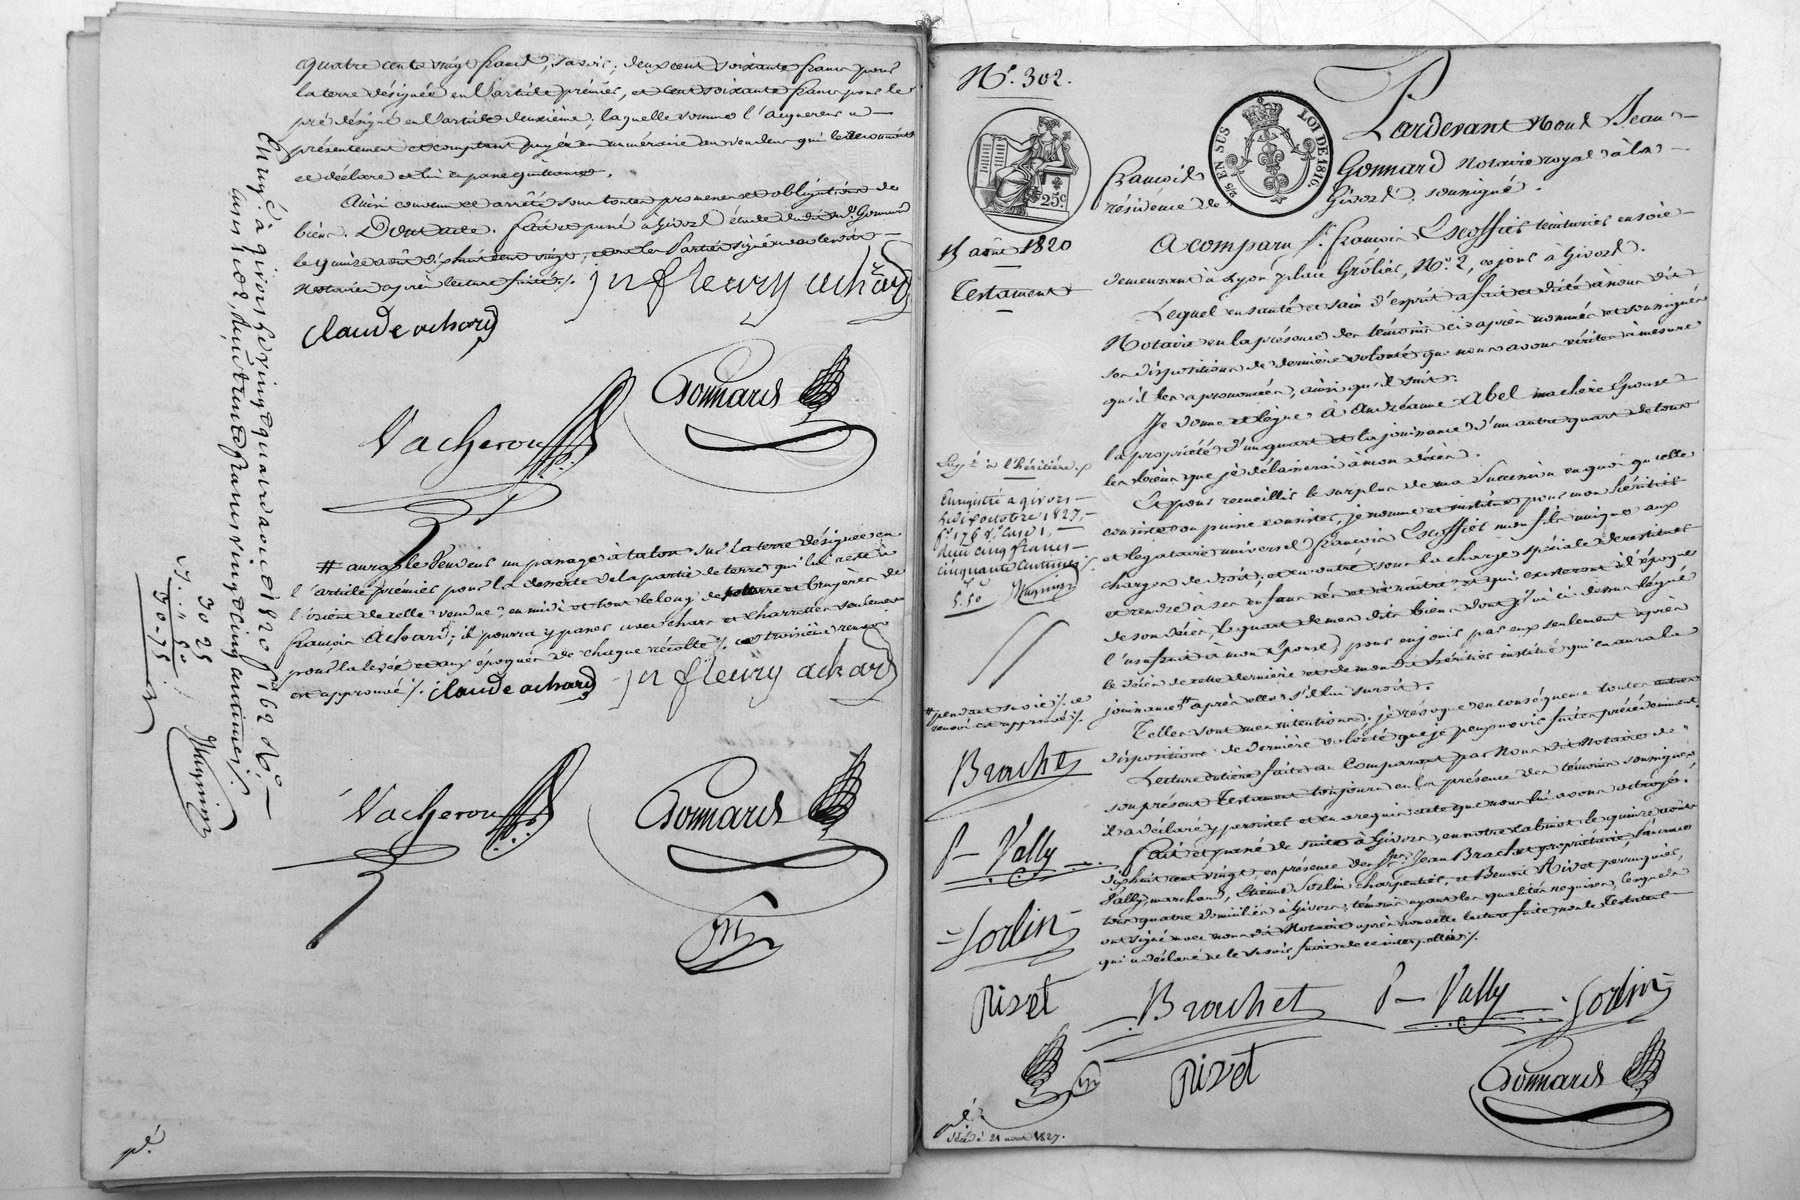 quatre cent vingt francs, savoir; deux cent soixante francs pour
la terre désignée en l'article premier, et cent soixante francs pour le
pré désigné en l'article deuxième, laquelle somme l'acquéreur a
présentement et comptant payée en numéraire au vendeur qui le reconnaît
ce déclare et lui en passe quittance.
Ainsi convenu et arrêté sous toutes promesses et obligations de
biens. Dont acte. fait et passé à Givors étude dudit Me Gonnard
le quinze août dix huit cent vingt, et ont les Parties signé avec les dits
Notaires après lecture faite ./.
jn fleury achard
claude achard
Gonnard
Vacheron
# aura le Vendeur un passage à talon sur la terre désignée en
l'article premier pour la desserte de la partie de terre qui lui reste à
l'orient de celle vendue, en midi et tout le long de terre et bruyères de
françois Achard; il pourra y passer avec chars et charrettes seulement
pour la levée et aux époques de chaque récolte ./. ce troisième renvoi
est approuvé ./.
claude achard
jn fleury achard
Vacheron
Gonnard
Enregé à givors le vingt quatre aout 1820 fo 162 Ro
cases 1 et 2, reçu trente francs vingt cinq centimes ./.
30 25
30-75
N°. 302.
25c
25 EN SUS
LOI DE 1816.
15 août 1820
Testament
Pardevant Nous Jean
françois Gonnard Notaire royal à la
résidence de Givors, soussigné.
A comparu Sr. françois Escoffier teinturier en soie
demeurant à Lyon place Grôlier, N°. 2, ce jour à Givors.
Lequel en santé et sain d'esprit a fait et dicté à nous dit
Notaire en la présence des témoins ci après nommés et soussignés
ses dispositions de dernière volonté que nous avons écrites à mesure
qu'il les a prononcées, ainsi qu'il suit.
Je donne et lègue à Andréanne Abel ma chère Epouse
la propriété d'un quart et la jouissance d'un autre quart de tous
les biens que je délaisserai à mon décès.
Et pour recueillir le surplus de ma Succession en quoi qu'elle
consiste ou puisse consister, je nomme et institue pour mon héritier
et légataire universel françois Escoffier mon fils unique aux
charges de droit, et en outre sous la charge spéciale de restituer
et rendre à ses enfans nés et à naître et qui existeront à l'époque
de son décès, le quart de mes dits biens dont j'ai ci-dessus légué
l'usufruit à mon épouse, pour en jouir par eux seulement après
le décès de cette dernière et de mon dit héritier institué qui en aura la
jouissance # après elle s'il lui survit.
Telles sont mes intentions, je révoque en conséquence toutes autres
dispositions de dernière volonté que je peux avoir faites précédemment.
Lecture entière faite au Comparant par Nous dit Notaire de
son présent Testament toujours en la présence des témoins soussignés
il a déclaré y persister et en a requis acte que nous lui avons octroyé.
fait et passé de suite à Givors, en notre cabinet le quinze août
dix huit cent vingt, en présence des Srs. Jean Brachet propriétaire,
Vally, marchand, Etienne Sorlin charpentier, et Benoit Rivet perruquier,
tous quatre domiciliés à Givors, témoins ayant les qualités requises, lesquels
ont signé avec nous dit Notaire après nouvelle lecture faite, non le Testateur
qui a déclaré ne le savoir faire de ce interpellé ./.
Enregistré a givors
le dix octobre 1827,
fo 176 Vo Case 1,
cinq francs
cinquante centimes ./.
5.50
# pendant sa vie ./. ce
renvoi est approuvé ./.
Brachet
P Vally
Sorlin
Rivet
Brachet P Vally Sorlin
Rivet
Gonnard
Décédé 21 1827.